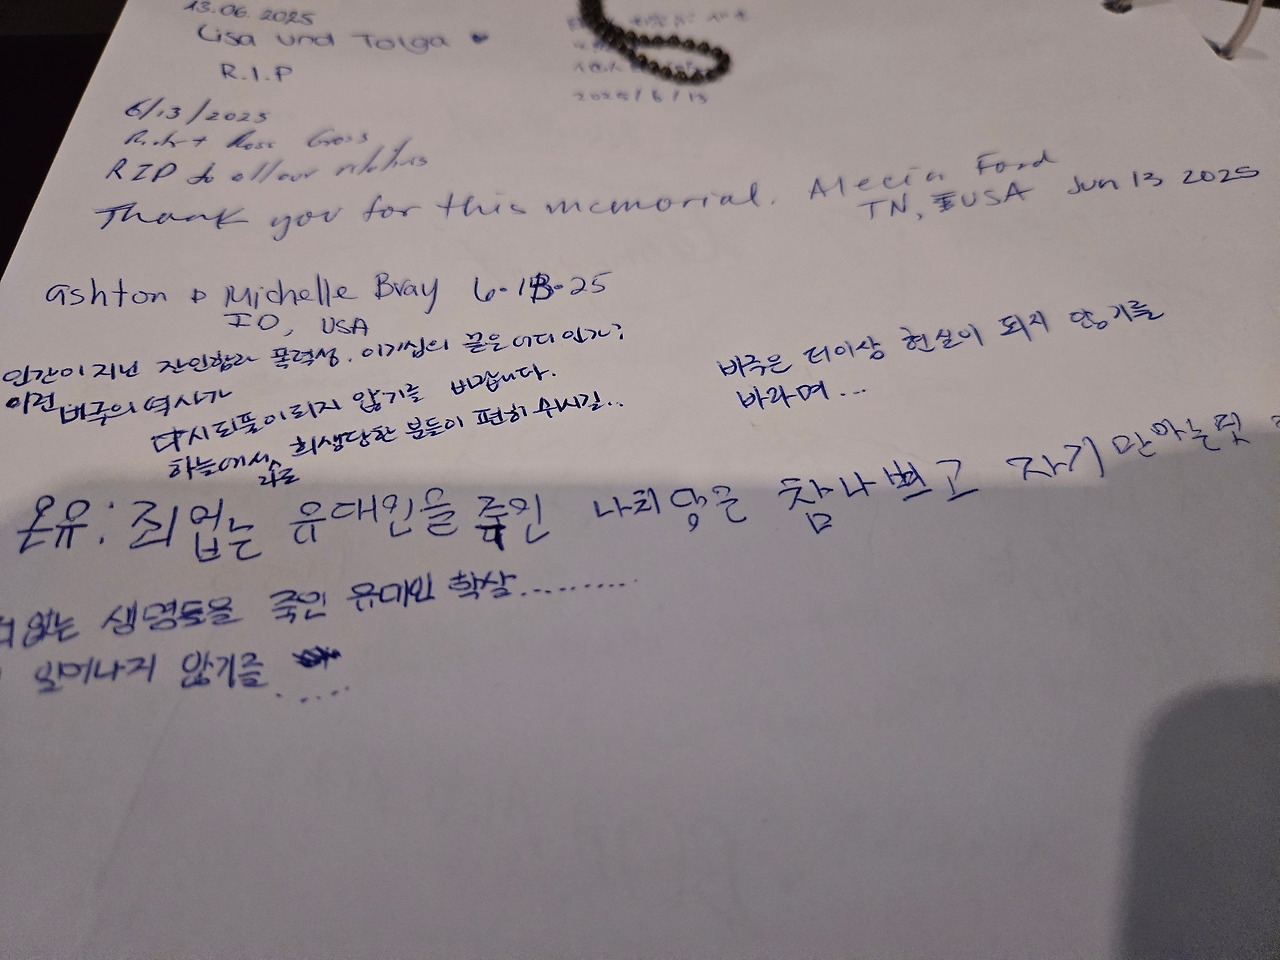 13.06.2025
Lisa und Tolga
R.I.P
2025/6/13
6/13/2025
Rose Gross
RIP to all our relatives
Thank you for this memorial. Alecia Ford
TN, USA Jun 13 2025
Ashton & Michelle Bray 6-13-25
ID, USA
인간이 지닌 잔인함과 폭력성. 이기심의 끝은 어디인가?
이런 비극의 역사가
다시 되풀이되지 않기를 바랍니다.
하늘에서라도 희생당한 분들이 편히 쉬시길..
비극은 더이상 현실이 되지 않기를
바라며...
온유: 죄 없는 유대인을 죽인 나치당은 참 나쁘고 자기만 아는 것
없는 생명들을 죽인 유대인 학살..........
일어나지 않기를 .....